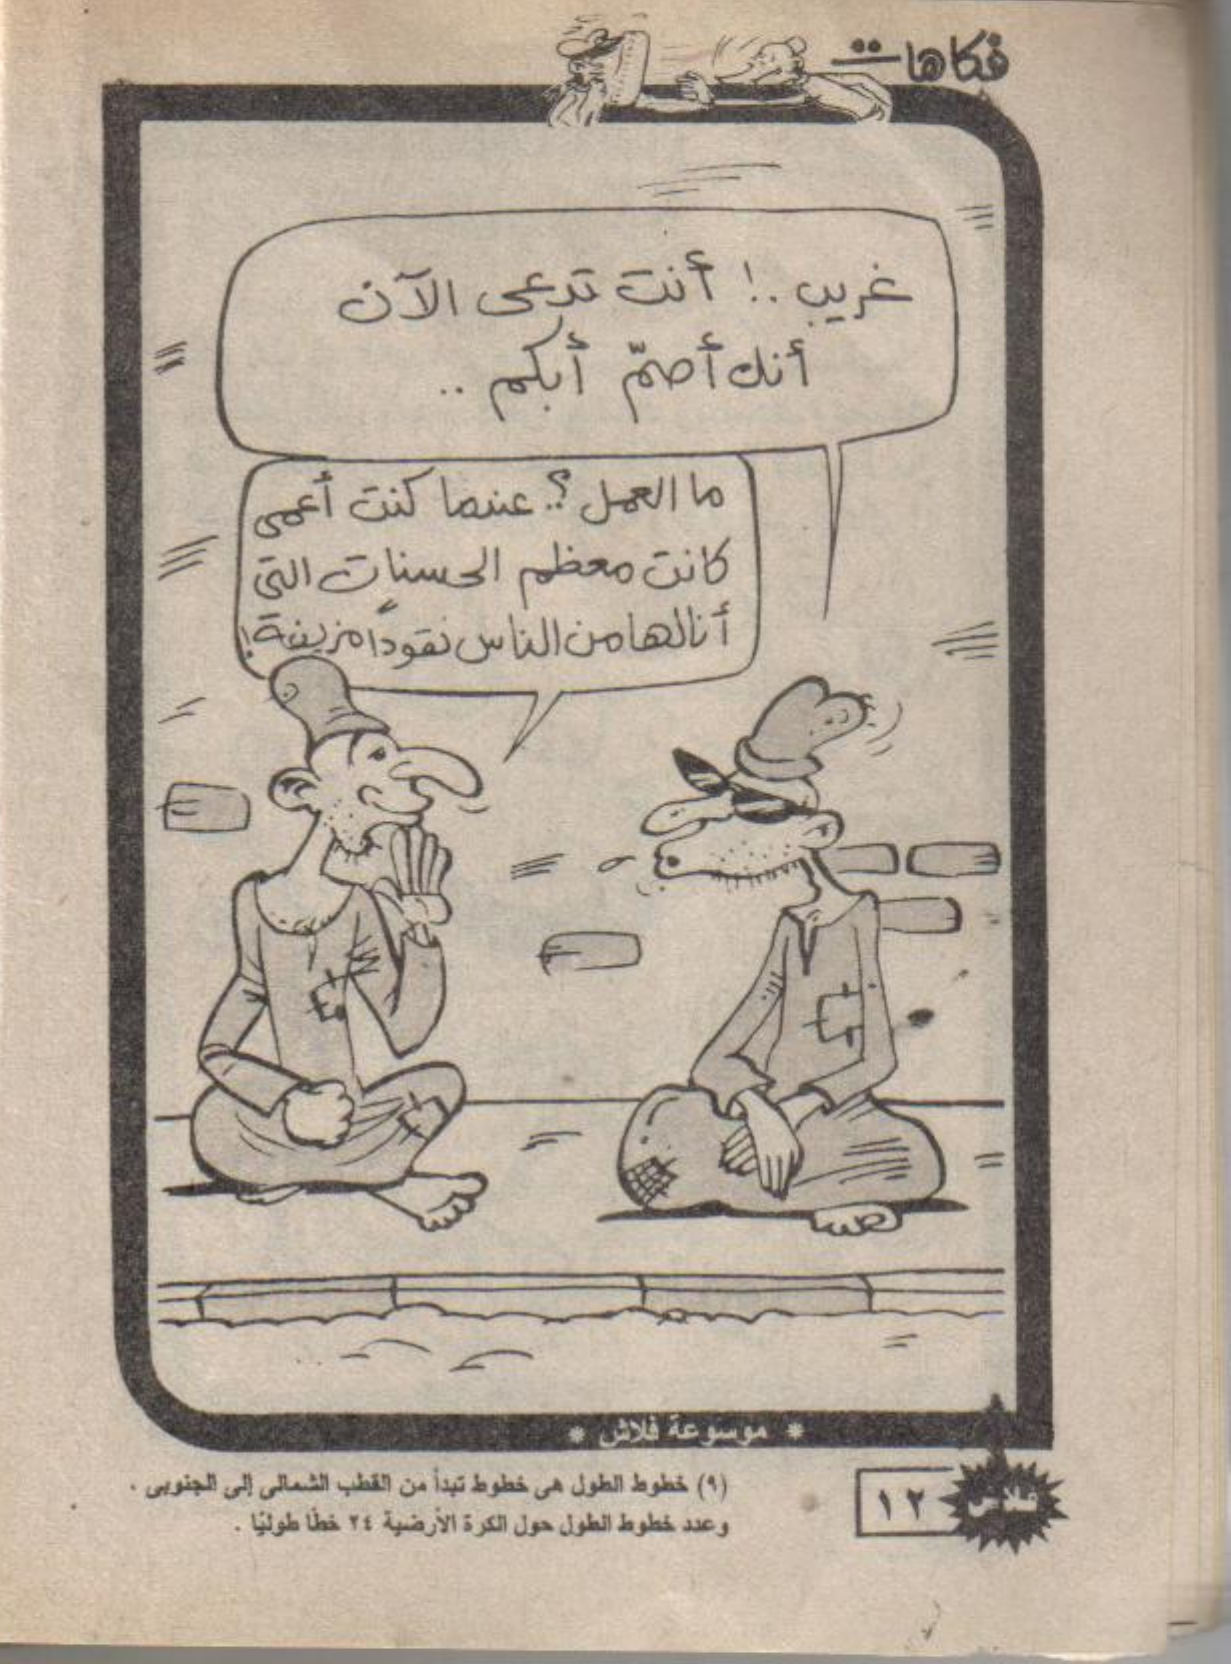 فكاهات
غريب ..! أنت تدعى الآن
أنك أصمّ أبكم ..
ما العمل ؟.. عندما كنت أعمى
كانت معظم الحسنات التى
أنالها من الناس نقوداً مزيفة!
* موسوعة فلاش *
(٩) خطوط الطول هى خطوط تبدأ من القطب الشمالى إلى الجنوبى .
وعدد خطوط الطول حول الكرة الأرضية ٢٤ خطًا طوليًا .
١٢
فلاش